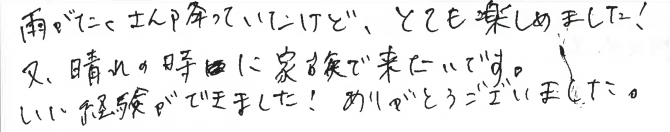 雨がたくさん降っていたけど、とても楽しめました！
又、晴れの時に家族で来たいです。
いい経験ができました！ありがとうございました。